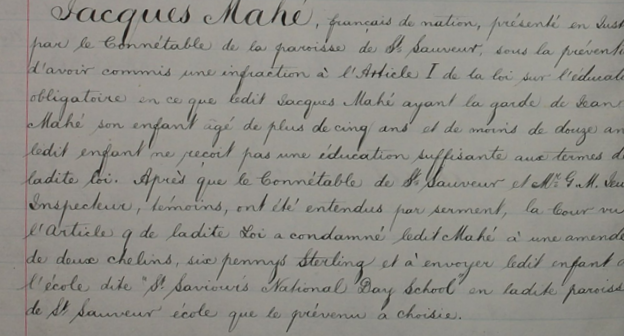 Jacques Mahé, français de nation, présenté en Just
par le Connétable de la paroisse de St. Sauveur, sous la préventi
d'avoir commis une infraction à l'Article I de la loi sur l'éducati
obligatoire en ce que ledit Jacques Mahé ayant la garde de Jean
Mahé son enfant âgé de plus de cinq ans et de moins de douze an
ledit enfant ne reçoit pas une éducation suffisante aux termes d
ladite loi. Après que le Connétable de St. Sauveur et Mr. G. M.
Inspecteur, témoins, ont été entendus par serment, la Cour vu
l'Article 9 de ladite Loi a condamné ledit Mahé à une amende
de deux chelins, six pennys Sterling et à envoyer ledit enfant à
l'école dite "St. Saviour's National Day School" en ladite paroiss
de St. Sauveur école que le prévenu a choisie.